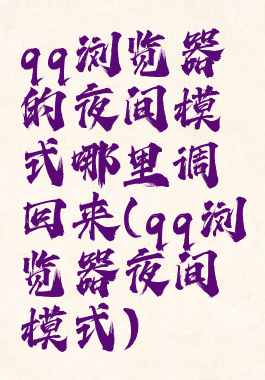 qq浏览器
的夜间模
式哪里调
回来(qq浏
览器夜间
模式)